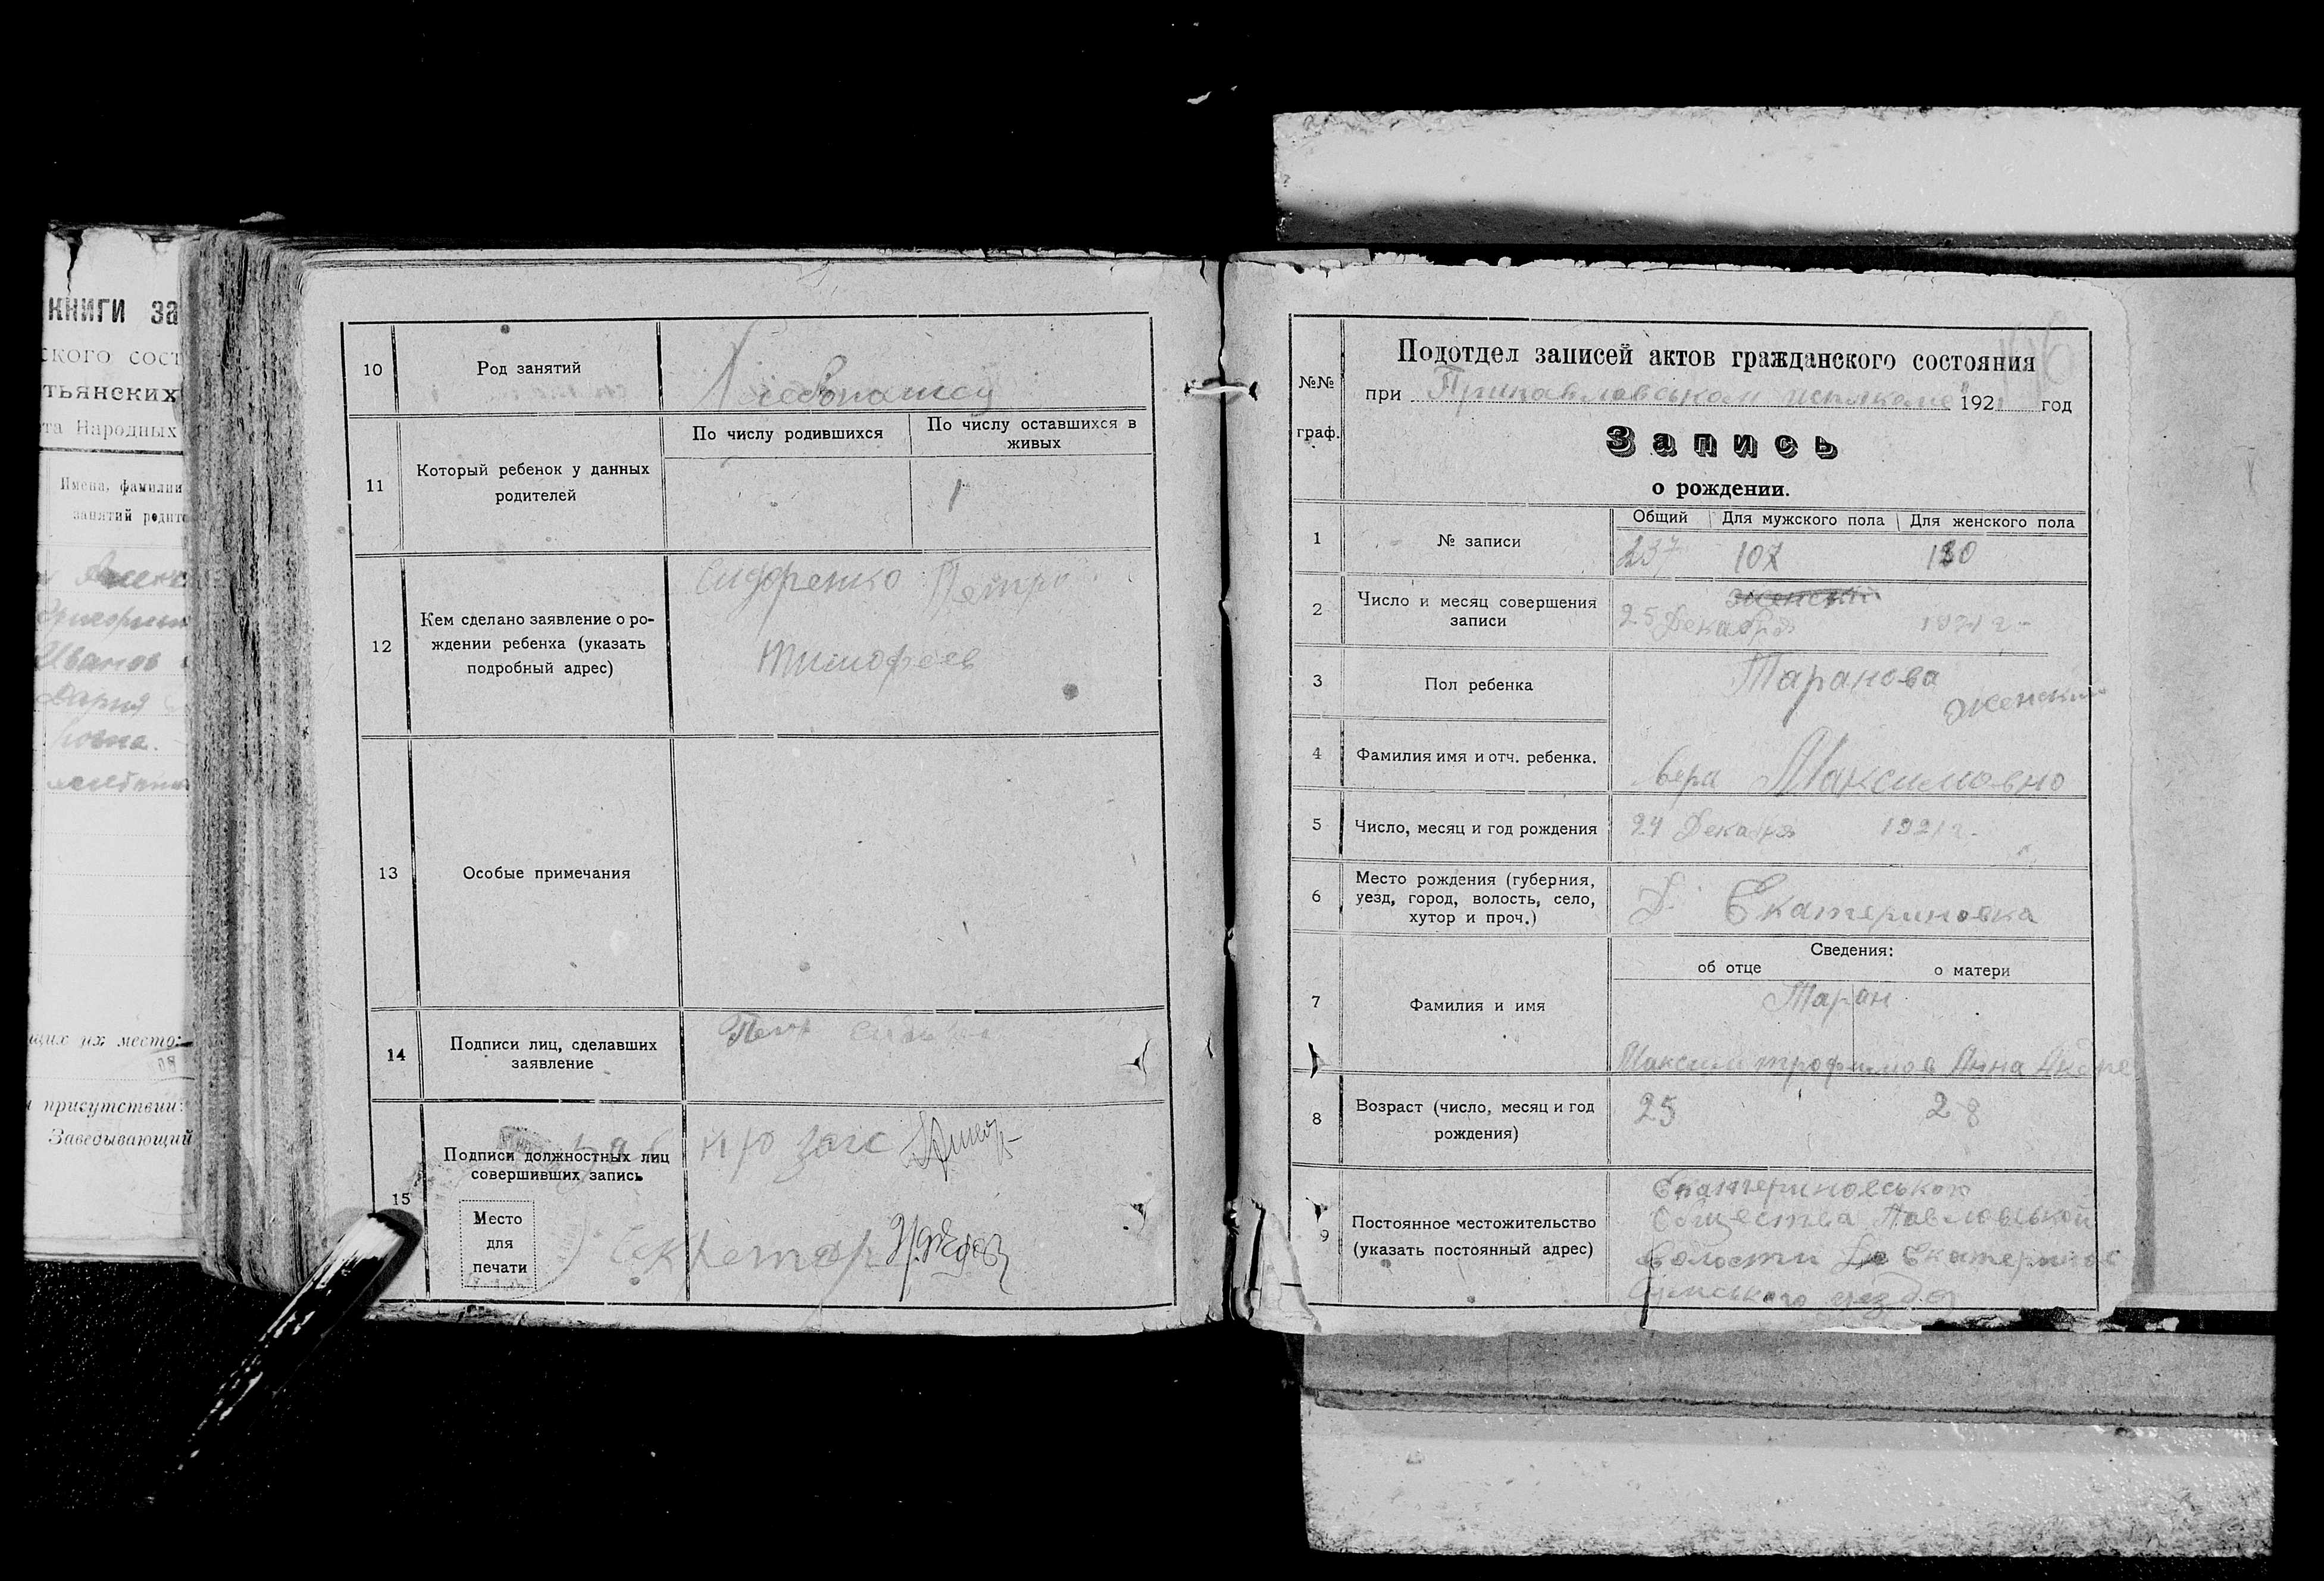 книги за
ского сост
тьянских
та Народных
Имена, фамилии
занятий родите
Иванов
Дария
щих их место:
присутствии:
Заведывающий
10 Род занятий Хлебопашец
11 Который ребенок у данных родителей
По числу родившихся
По числу оставшихся в живых
1
12 Кем сделано заявление о ро-
ждении ребенка (указать
подробный адрес)
Сидоренко Петро
Тимофеев
13 Особые примечания
14 Подписи лиц, сделавших
заявление
Петр
15 Подписи должностных лиц
совершивших запись
Зав загс
Место
для
печати
Секретар
№№
граф.
Подотдел записей актов гражданского состояния
при Припавловском исполкоме 1921 год
Запись
о рождении.
1 № записи
Общий Для мужского пола Для женского пола
237 107 130
2 Число и месяц совершения
записи
женский
25 Декабря 1921 г.
3 Пол ребенка
Таранова
женский
4 Фамилия имя и отч. ребенка.
Вера Максимовно
5 Число, месяц и год рождения 24 Декабря 1921 г.
6 Место рождения (губерния,
уезд, город, волость, село,
хутор и проч.)
Д. Екатериновка
Сведения:
об отце о матери
7 Фамилия и имя
Таран
Максим трофимов Анна Андре
8 Возраст (число, месяц и год
рождения)
25 28
9 Постоянное местожительство
(указать постоянный адрес)
Екатериновськой
Общества Павловськой
Волости Екатеринов
Сумського уезда